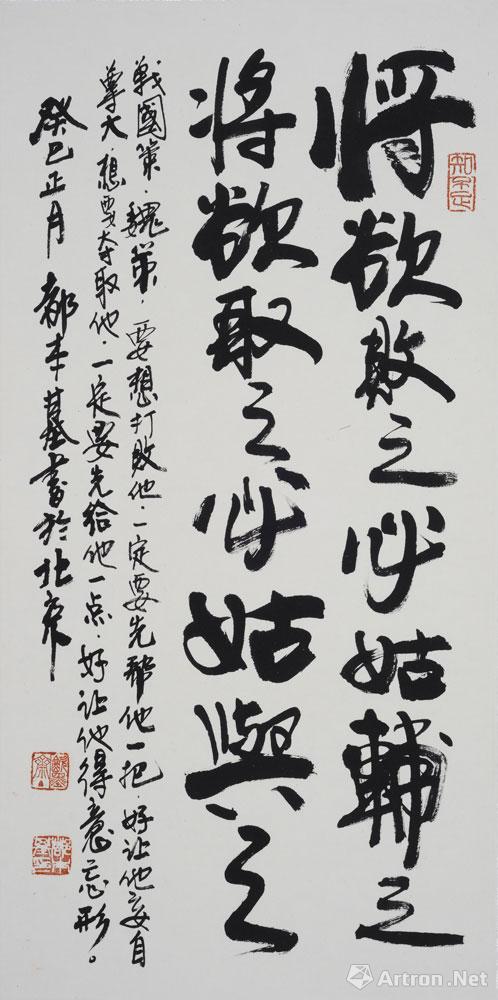 将欲敗之必姑輔之
将欲取之必姑與之
戰國策·魏策·要想打敗他·一定要先帮他一把 好让他妄自
尊大·想要夺取他·一定要先给他一点·好让他得意忘形。
癸巳正月 都本基書於北京
Artron.Net